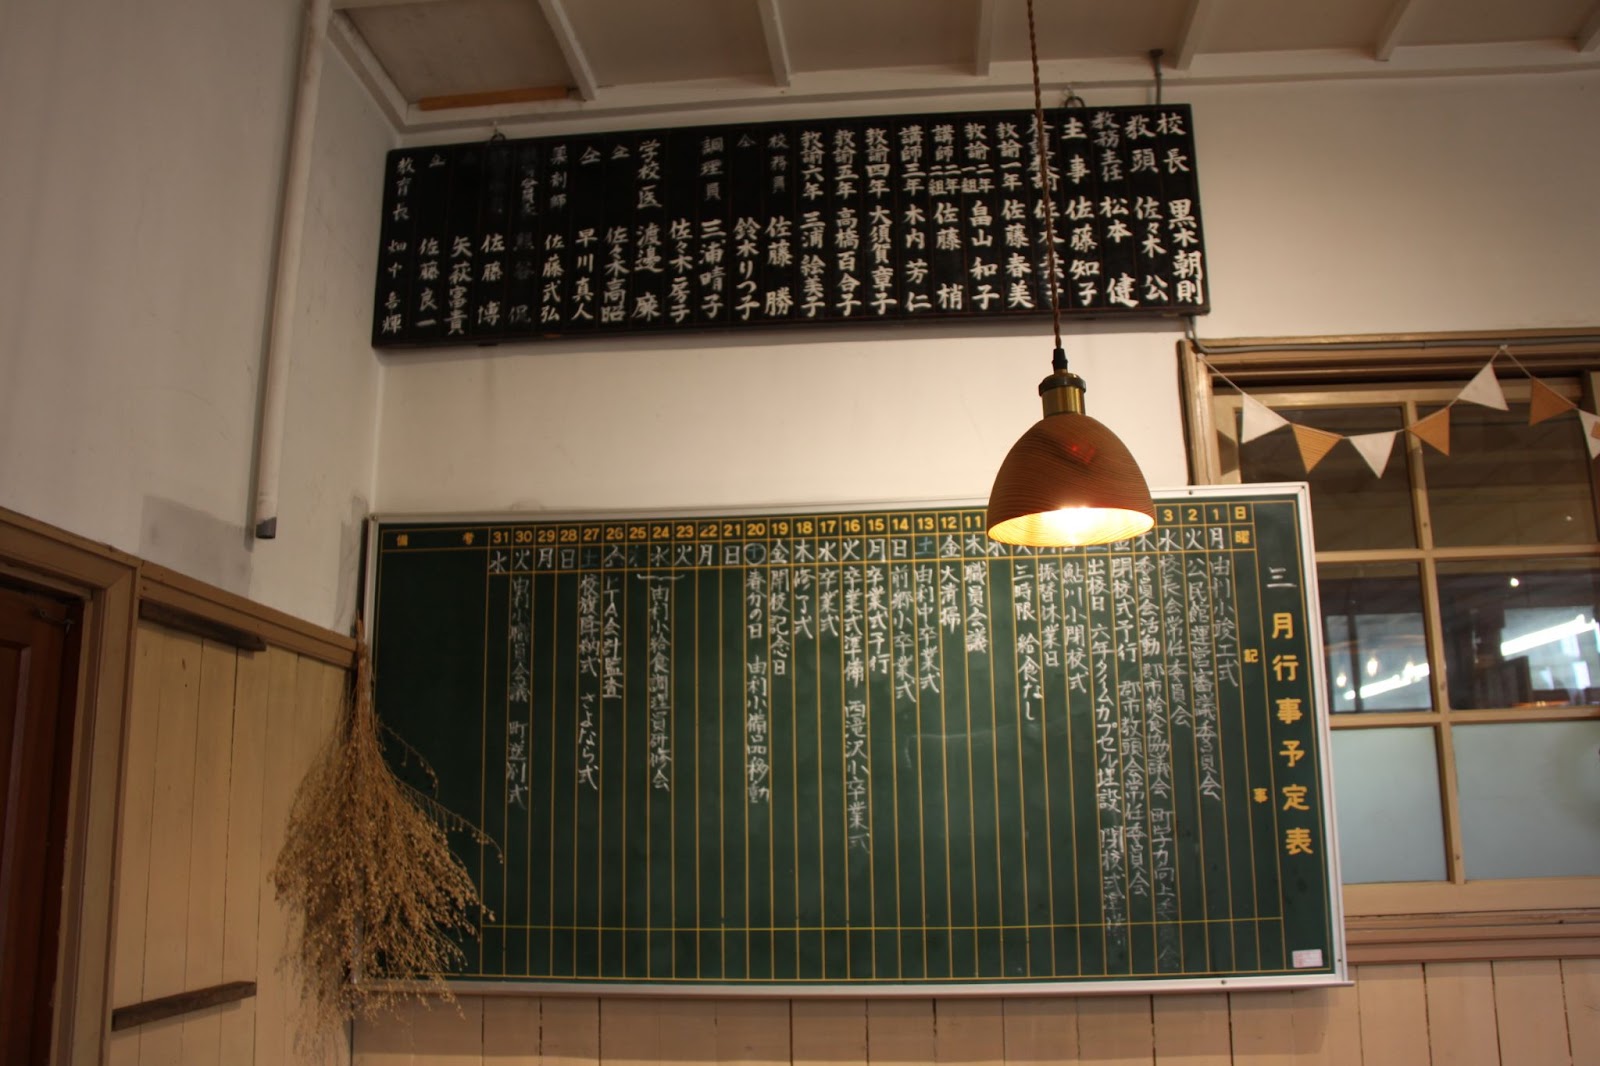 校長 黒木朝則
教頭 佐々木 公
教務主任 松本 健
主事 佐藤知子
教諭一年 佐藤春美
教諭二年一組 畠山和子
講師二年二組 佐藤 梢
講師三年 木内芳仁
教諭四年 大須賀章子
教諭五年 高橋百合子
教諭六年 三浦絵美子
校務員 佐藤 勝
仝 鈴木りつ子
調理員 三浦晴子
佐々木房子
学校医 渡邊 廉
仝 佐々木高昭
仝 早川真人
薬剤師 佐藤弐弘
熊谷 侃
佐藤 博
矢萩富貴
仝 佐藤良一
教育長 畑中喜輝
三月行事予定表
日 曜 記事
1 月 由利小竣工式
2 火 公民館運営審議委員会
3 水 校長会常任委員会 町学力向上委員会
木 委員会活動 郡市給食協議会 郡市教頭会常任委員会
金 閉校式予行
出校日 六年タイムカプセル埋設 閉校式準備
鮎川小閉校式
月 振替休業日
火 三時限 給食なし
水
11 木 職員会議
12 金 大清掃
13 土 由利中卒業式
14 日 前郷小卒業式
15 月 卒業式予行
16 火 卒業式準備 西滝沢小卒業式
17 水 卒業式
18 木 修了式
19 金 開校記念日
20 土 春分の日 由利小備品移動
21 日
22 月
23 火
24 水 由利小給食調理員研修会
25
26 金 PTA会計監査
27 土 校旗降納式 さよなら式
28 日
29 月
30 火 由利小職員会議 町送別式
31 水
備考